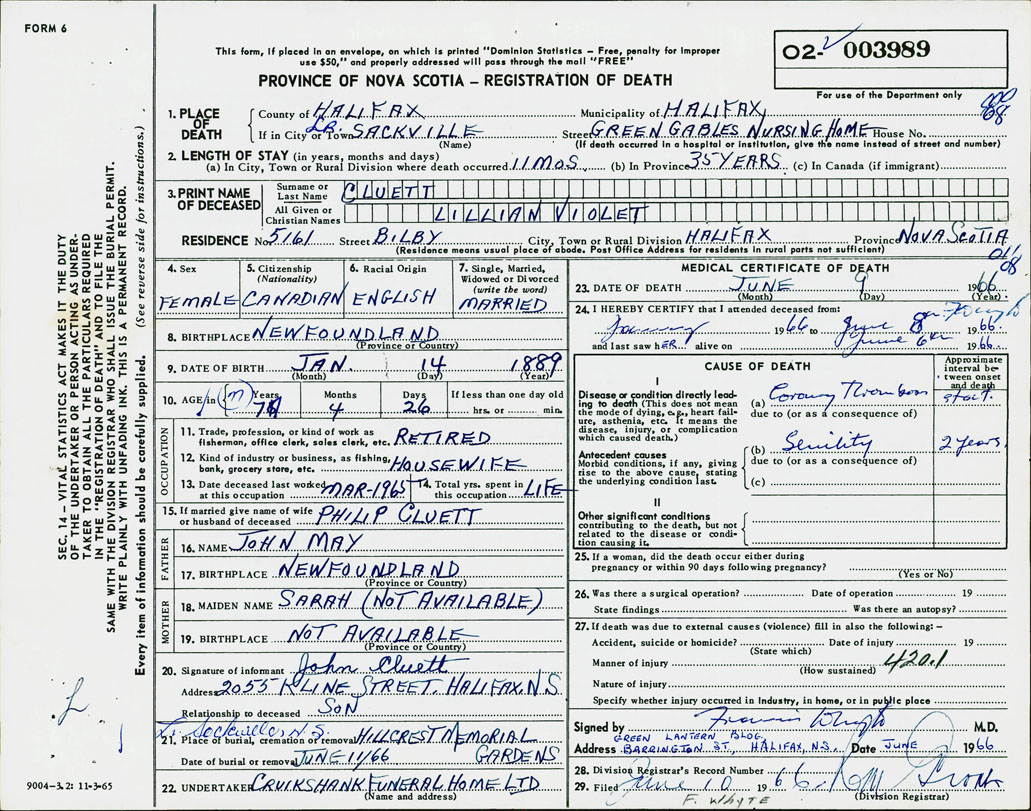 FORM 6
This form, if placed in an envelope, on which is printed "Dominion Statistics – Free, penalty for improper
use $50," and properly addressed will pass through the mail "FREE"
PROVINCE OF NOVA SCOTIA – REGISTRATION OF DEATH
02- 003989
For use of the Department only
1. PLACE OF DEATH
County of HALIFAX Municipality of HALIFAX
If in City or Town LR. SACKVILLE Street GREEN GABLES NURSING HOME House No.
(Name) (If death occurred in a hospital or institution, give the name instead of street and number)
08
2. LENGTH OF STAY (in years, months and days)
(a) In City, Town or Rural Division where death occurred 11 MOS. (b) In Province 35 YEARS (c) In Canada (if immigrant)
3. PRINT NAME OF DECEASED
Surname or Last Name CLUETT
All Given or Christian Names LILLIAN VIOLET
RESIDENCE No. 5161 Street BILBY City, Town or Rural Division HALIFAX Province NOVA SCOTIA
(Residence means usual place of abode. Post Office Address for residents in rural parts not sufficient)
08
SEC. 14 – VITAL STATISTICS ACT MAKES IT THE DUTY
OF THE UNDERTAKER OR PERSON ACTING AS UNDER-
TAKER TO OBTAIN ALL THE PARTICULARS REQUIRED
IN THE "REGISTRATION OF DEATH" AND TO FILE THE
SAME WITH THE DIVISION REGISTRAR WHO SHALL ISSUE THE BURIAL PERMIT.
WRITE PLAINLY WITH UNFADING INK. THIS IS A PERMANENT RECORD.
Every item of information should be carefully supplied. (See reverse side for instructions.)
4. Sex FEMALE
5. Citizenship (Nationality) CANADIAN
6. Racial Origin ENGLISH
7. Single, Married, Widowed or Divorced (write the word) MARRIED
8. BIRTHPLACE NEWFOUNDLAND
(Province or Country)
9. DATE OF BIRTH JAN. 14 1889
(Month) (Day) (Year)
10. AGE in (M) Years Months 4 Days 26 If less than one day old
hrs. or min.
OCCUPATION
11. Trade, profession, or kind of work as
fisherman, office clerk, sales clerk, etc. RETIRED
12. Kind of industry or business, as fishing,
bank, grocery store, etc. HOUSEWIFE
13. Date deceased last worked
at this occupation MAR-1965
14. Total yrs. spent in
this occupation LIFE
15. If married give name of wife
or husband of deceased PHILIP CLUETT
FATHER
16. NAME JOHN MAY
17. BIRTHPLACE NEWFOUNDLAND
(Province or Country)
MOTHER
18. MAIDEN NAME SARAH (NOT AVAILABLE)
19. BIRTHPLACE NOT AVAILABLE
(Province or Country)
20. Signature of informant John Cluett
Address 2055 KLINE STREET, HALIFAX, N.S.
Relationship to deceased SON
L. Sackville, N.S.
21. Place of burial, cremation or removal HILLCREST MEMORIAL
GARDENS
Date of burial or removal JUNE 11/66
22. UNDERTAKER CRUIKSHANK FUNERAL HOME LTD
(Name and address)
9004-3.2: 11-3-65
MEDICAL CERTIFICATE OF DEATH
23. DATE OF DEATH JUNE 9 1966
(Month) (Day) (Year)
24. I HEREBY CERTIFY that I attended deceased from:
January 1966 to June 8 1966.
and last saw hER. alive on June 6th 1966.
CAUSE OF DEATH
Approximate interval between onset and death
I
Disease or condition directly lead-
ing to death (This does not mean
the mode of dying, e.g., heart fail-
ure, asthenia, etc. It means the
disease, injury, or complication
which caused death.)
(a) Coronary Thrombosis
due to (or as a consequence of)
Antecedent causes
Morbid conditions, if any, giving
rise to the above cause, stating
the underlying condition last.
(b) Senility 2 years
due to (or as a consequence of)
(c)
II
Other significant conditions
contributing to the death, but not
related to the disease or condi-
tion causing it.
25. If a woman, did the death occur either during
pregnancy or within 90 days following pregnancy?
(Yes or No)
26. Was there a surgical operation? Date of operation 19
State findings Was there an autopsy?
27. If death was due to external causes (violence) fill in also the following: –
Accident, suicide or homicide? Date of injury 19
(State which)
Manner of injury 420.1
(How sustained)
Nature of injury
Specify whether injury occurred in industry, in home, or in public place
Signed by M.D.
GREEN LANTERN BLDG.
Address BARRINGTON ST., HALIFAX, N.S. Date JUNE 1966
28. Division Registrar's Record Number
29. Filed June 10 1966
(Division Registrar)
F. WHYTE